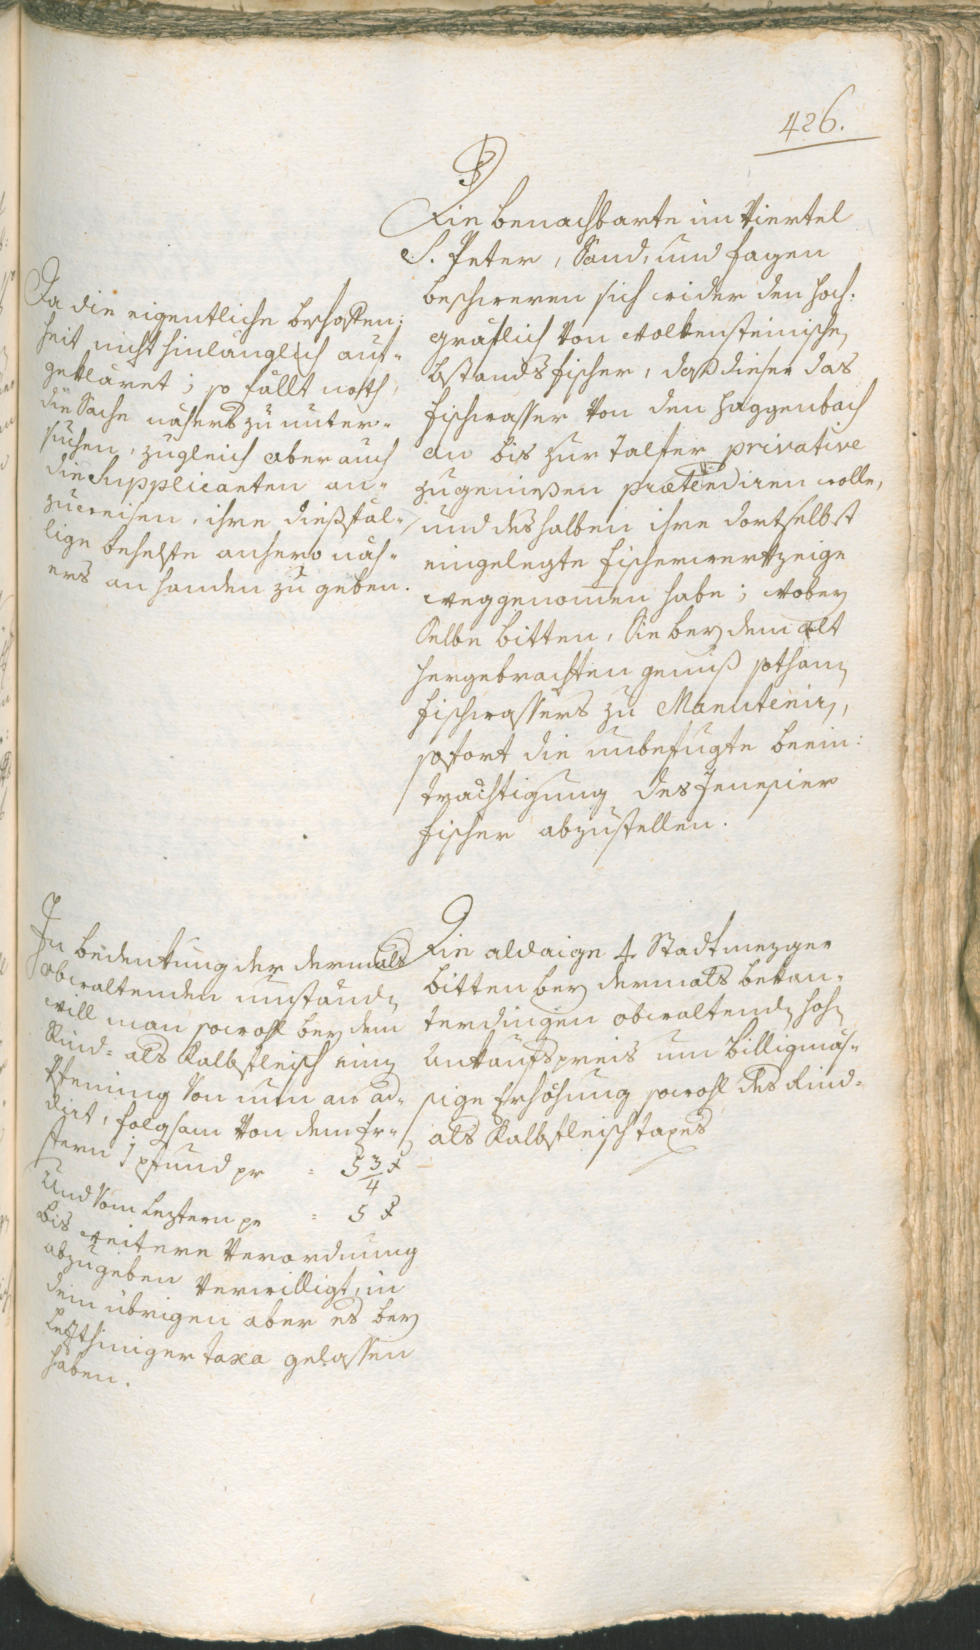 426.
Die benachbarte im Viertel
S. Peter, Sand, und Fagen
beschweren sich wider den hoch-
gräflich von Wolkensteinischen
bstandsfischer, daß dieser das
fischwasser von den Haggenbach
an bis zur Talfer privative
zugenießen prætendiren wolle,
und deshalben ihre dortselbst
eingelegte fischerwerkzeige
weggenomen habe; wobey
Selbe bitten, Sie bey dem alt
hergebrachten genuß sothanen
fischwassers zu Manuteniren,
sofort die unbefugte beein:
trächtigung des Jenesier
fischer abzustellen.
Da die eigentliche beschaffen:
heit nicht hinlänglich auf-
gekläret; so fällt noth
die Sache nähers zu unter-
suchen, zugleich aber auch
die Supplicanten an-
zuweisen, ihre dießfäl-
lige behelfe anhero näh-
ers an handen zu geben.
Die aldaige 4 Stadtmezger
bitten bey dermals bekan-
terdingen obwaltenden hohen
Ankaufspreis um billigmäs-
sige Erhöhung sowohl des Rind-
als Kalbfleischtaxes
In bedeutung der dermals
obwaltenden umständen
will man sowohl bey dem
Rind- als Kalbfleisch einen
Pfening von nun an ad-
dirt, folgsam von dem Er-
stern 1 pfund pr = 5 3/4 x
Und vom leztern pr = 5 x
bis weitere Verordnung
abzugeben verwilligt, in
dem übrigen aber es bey
lezthiniger taxa gelassen
haben.